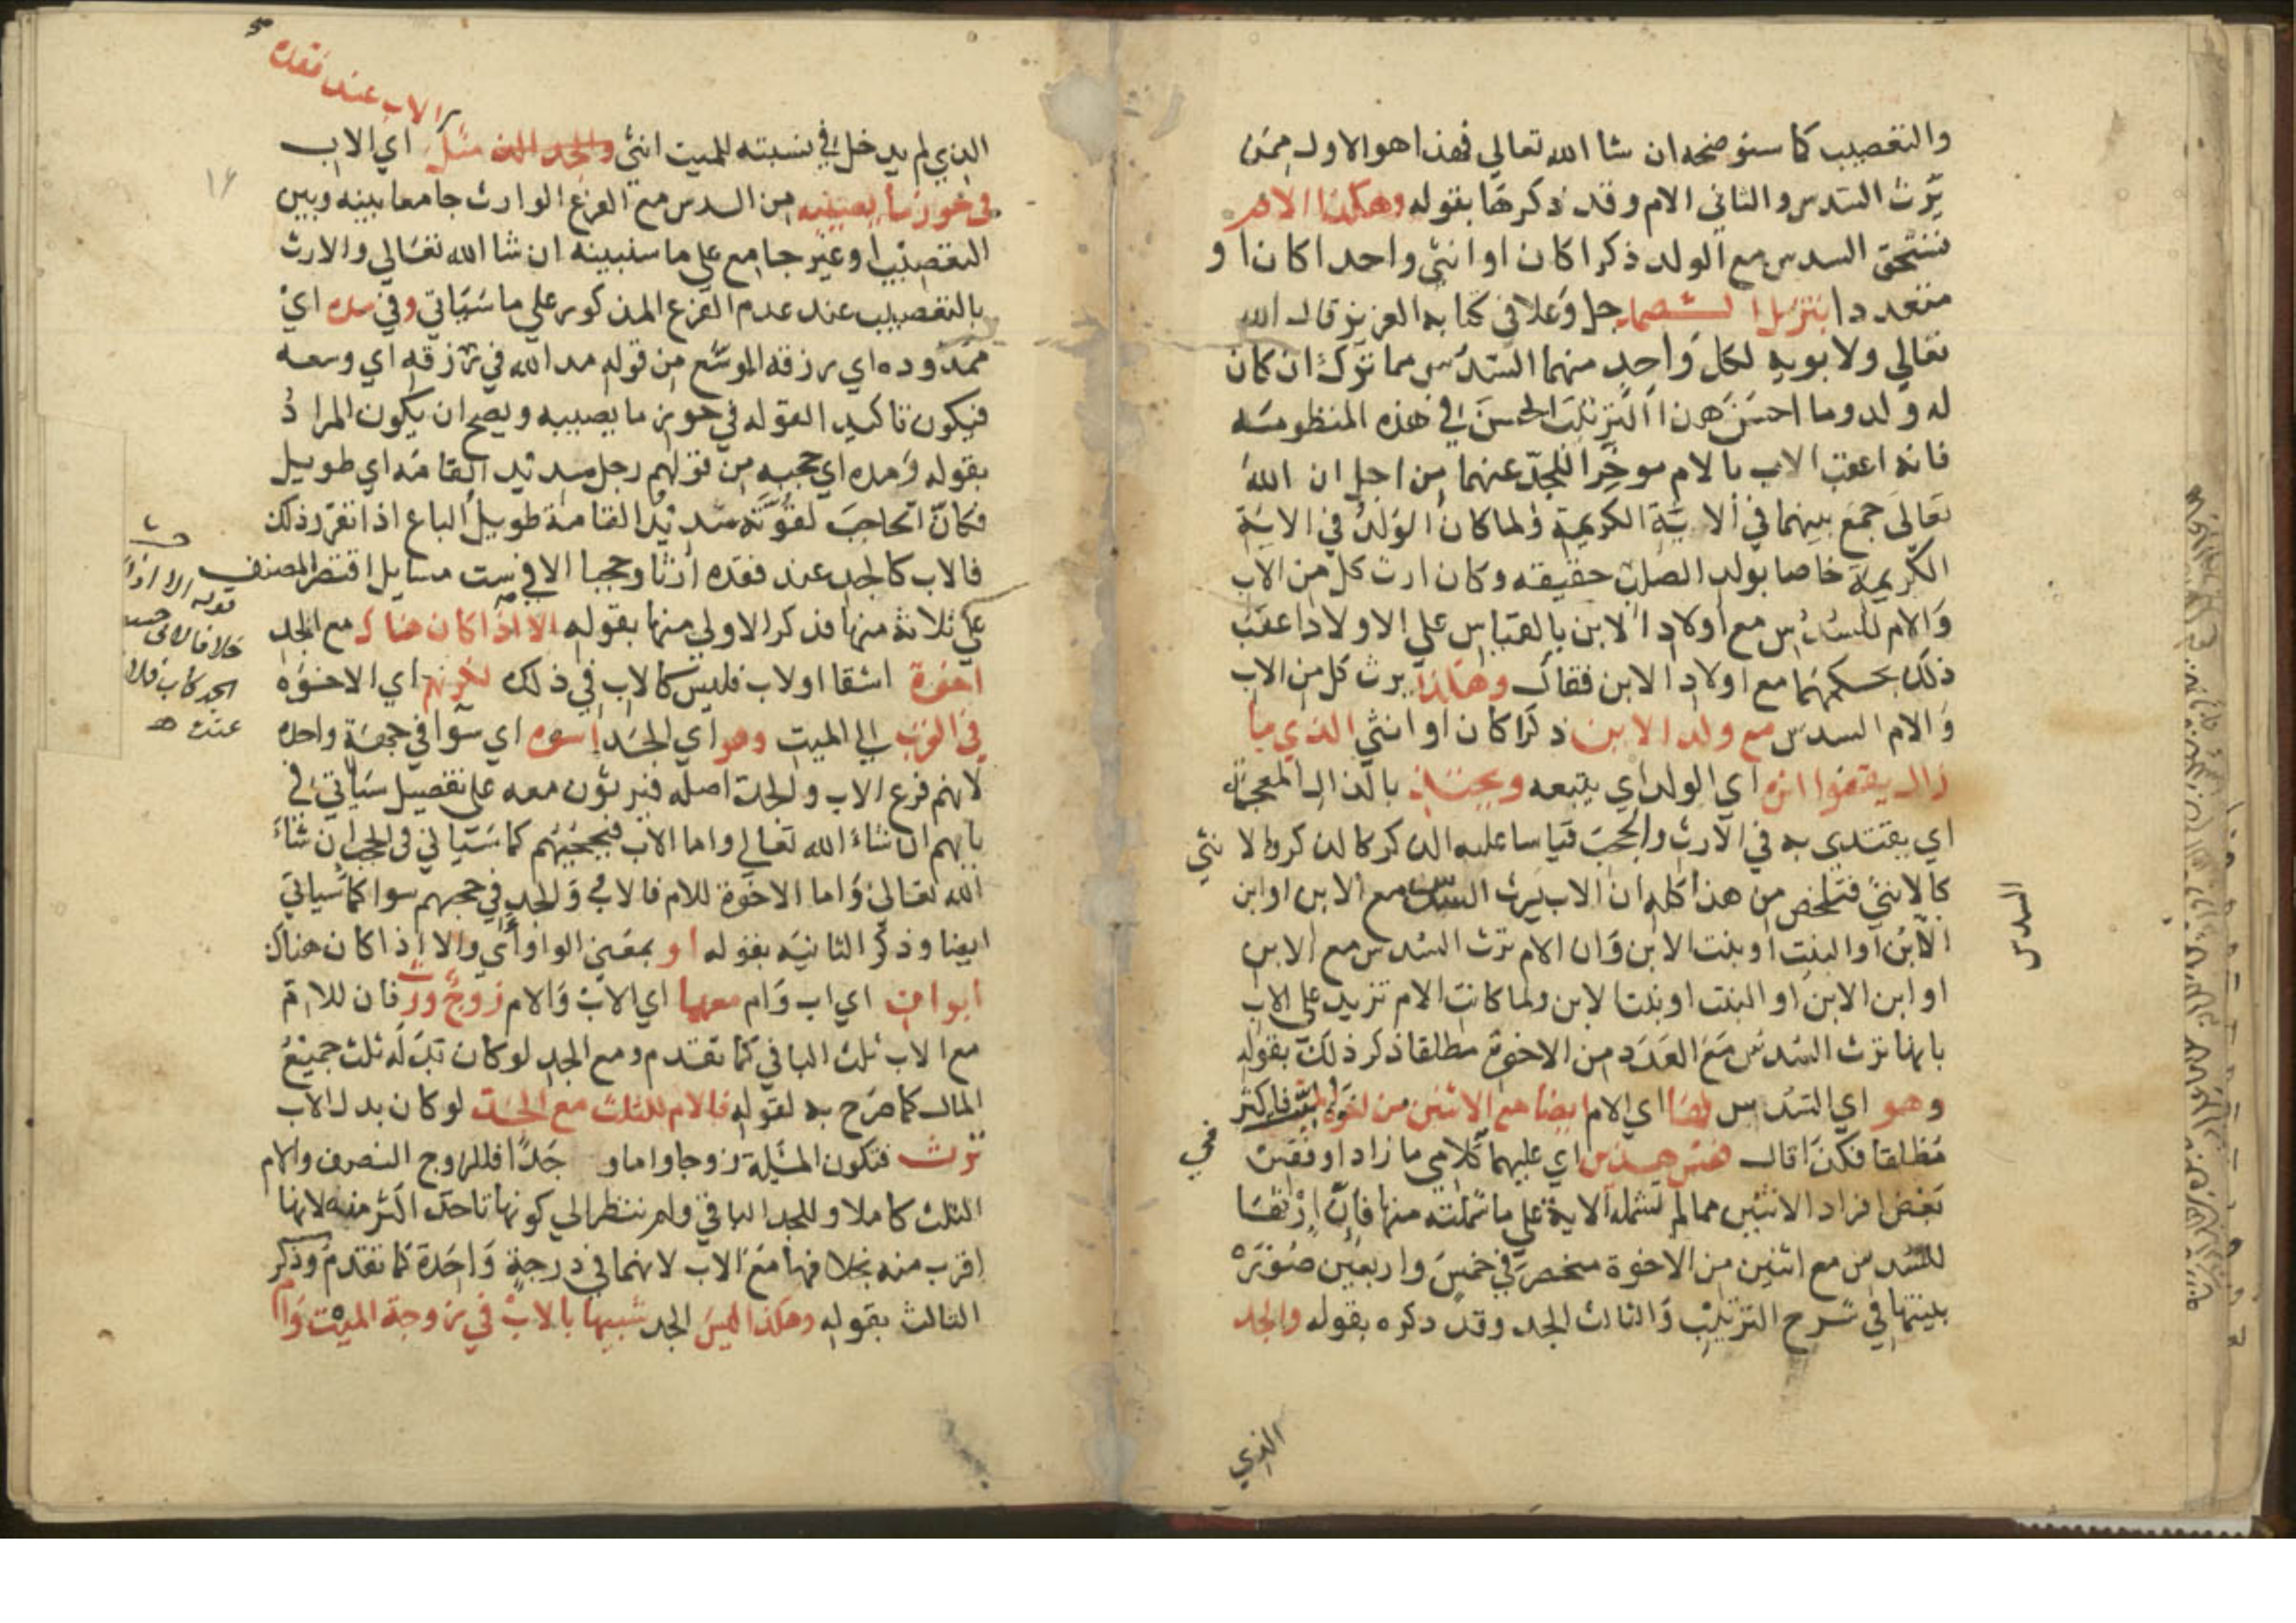 والتعصيب كما سنوضحه ان شا الله تعالي فهذا هو الاول ممن
يرث السدس والثاني الام وقد ذكرها بقوله وهكذا الام
تستحق السدس مع الولد ذكرا كان او انثي واحدا كان او
متعددا بتنزيل الصمد جل وعلا في كتابه العزيز قال الله
تعالي ولابويه لكل واحد منهما السدس مما ترك ان كان
له ولد وما احسن هذا الترتيب الحسن في هذه المنظومة
فانه اعقب الاب بالام موخرا للجد عنهما من اجل ان الله
تعالي جمع بينهما في الاية الكريمة ولما كان الولد في الاية
الكريمة خاصا بولد الصلب حقيقه وكان ارث كل من الاب
والام للسدس مع اولاد الابن بالقياس علي الاولاد اعقب
ذلك بحكمهما مع اولاد الابن فقال وهكذا يرث كل من الاب
والام السدس مع ولد الابن ذكرا كان او انثي الذي ما
زال يقفوا اثره اي الولد اي يتبعه ويحتذي بالذال المعجمة
اي يقتدي به في الارث والحجب قياسا عليه الذكر كالذكر والانثي
كالانثي فتلخص من هذا كله ان الاب يرث السدس مع الابن او ابن
السدس
الابن او البنت او بنت الابن وان الام ترث السدس مع الابن
او ابن الابن او البنت او بنت الابن ولما كانت الام تزيد علي الاب
بانها ترث السدس مع العدد من الاخوة مطلقا ذكر ذلك بقوله
وهو اي السدس لها اي الام ايضا مع الاثنين من اخوة الميت فاكثر
مطلقا فكن قال فقس هذين اي عليهما كلامي ما زاد او نقص
بعض افراد الاثنين مما لم تشمله الاية علي ما شملته منها فان ارثها
للسدس مع اثنين من الاخوة منحصر في خمس واربعين صورة
بينتها في شرح الترتيب والثالث الجد وقد ذكره بقوله والجد
الذي
الاب عند فقده
الذي لم يدخل في نسبته للميت انثي والجد مثل اي الاب
في حوز ما يصيبه من السدس مع الفرع الوارث جامعا بينه وبين
التعصيب او غير جامع علي ما سنبينه ان شا الله تعالي والارث
بالتعصيب عند عدم الفرع المذكور علي ما سياتي وفي مده اي
ممدوده اي رزقه الموسع من قوله مد الله في رزقه اي وسعه
فيكون تاكيد القوله في حوز ما يصيبه ويصح ان يكون المراد
بقوله ومده اي حجبه من قولهم رجل مديد القامه اي طويل
فكان الحاجب لقوته مديد القامة طويل الباع اذا تقرر ذلك
فالاب كالجد عند فقده ارثا وحجبا الا في ست مسايل اقتصر المصنف
علي ثلاثة منها فذكر الاولي منها بقوله الا اذا كان هناك مع الجد
اخوة اشقا او لاب فليس كالاب في ذلك لكونهم اي الاخوه
في القرب الي الميت وهو اي الجد اسوه اي سوا في جهة واحده
لانهم فرع الاب والجد اصله فيرثون معه علي تفصيل سياتي في
بابهم ان شاء الله تعالي واما الاب فيحجبهم كما سياتي في الحجب ان شاء
الله تعالي واما الاخوة للام فالاب والجد في حجبهم سوا كما سياتي
ايضا وذكر الثانيه بقوله او بمعني الواو أي والا اذا كان هناك
ابوان اي اب وام معهما اي الاب والام زوج ورث فان للام
مع الاب ثلث الباقي كما تقدم ومع الجد لو كان بدله ثلث جميع
المال كما صرح به لقوله فالام للثلث مع الجد لو كان بدل الاب
ترث فتكون المسيلة زوجا واما و جدا فللزوج النصف والام
الثلث كاملا وللجد الباقي ولم ننظر الي كونها تاخذ اكثر منه لانها
اقرب منه بخلافها مع الاب لانهما في درجة واحدة كما تقدم وذكر
الثالث بقوله وهكذا ليس الجد شبيها بالاب في زوجة الميت وام
قوله الا اذا
خلافا لابي
الجد كاب
عنده